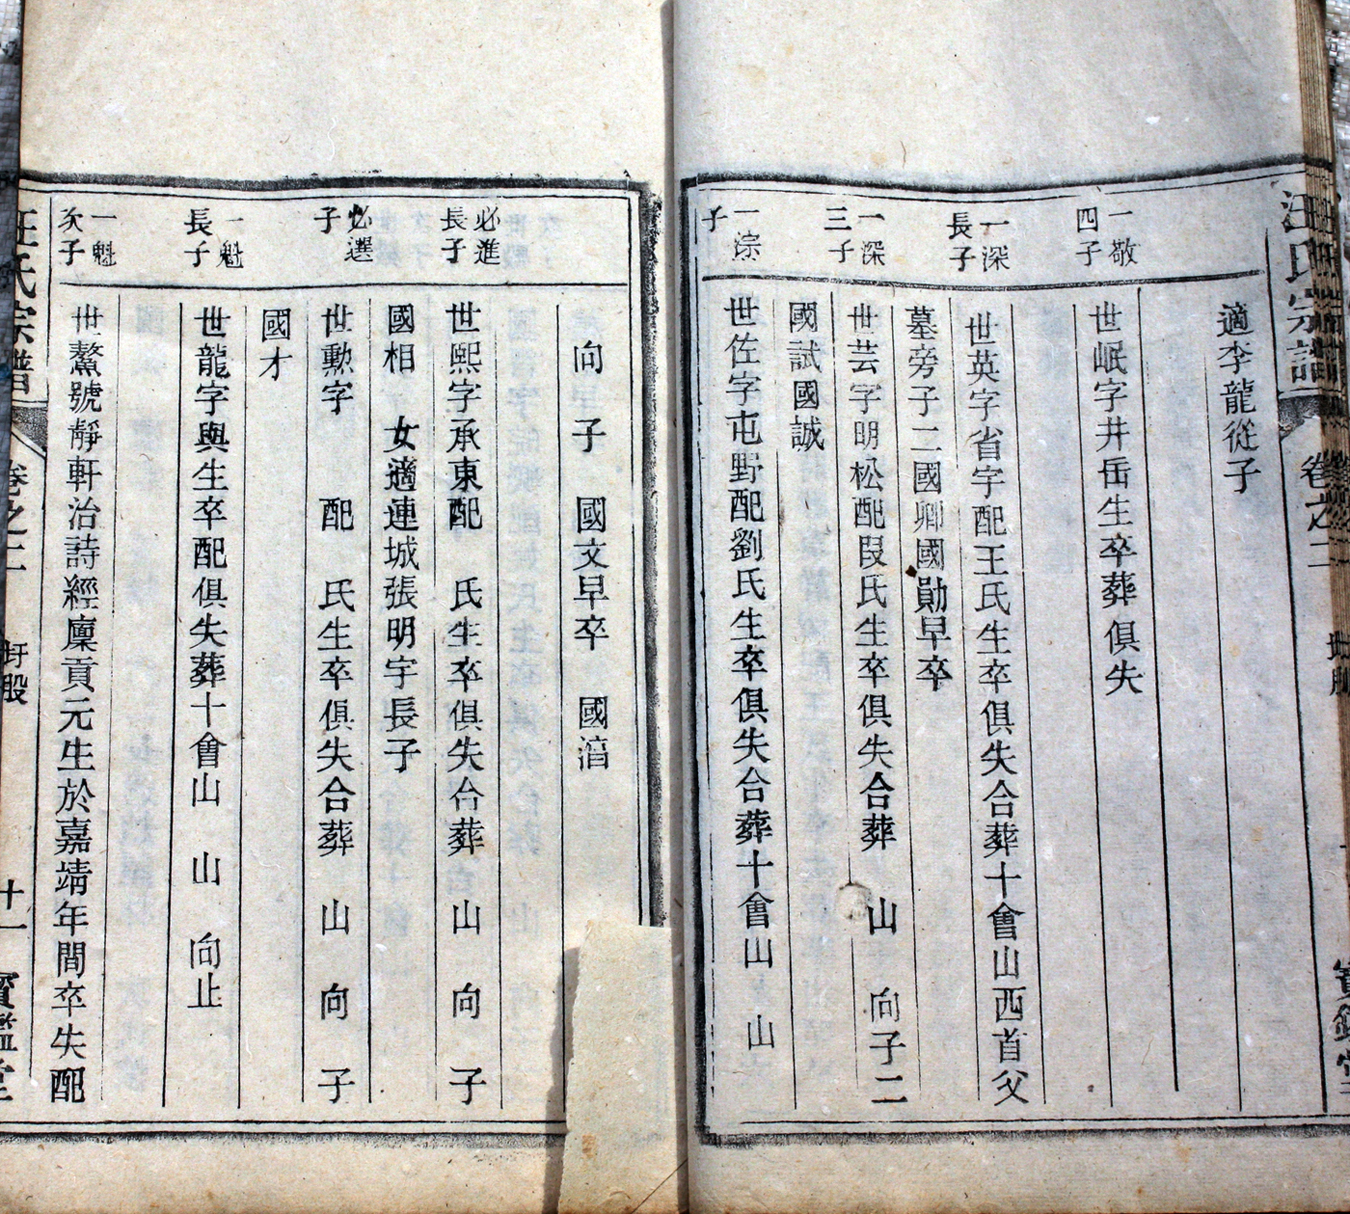 汪氏宗譜
卷之二
適李龍從子
一敬
四子
世岷字井岳生卒葬俱失
一深
長子
世英字省宇配王氏生卒俱失合葬十會山西首父
墓旁子二國卿國勛早卒
一深
三子
世芸字明松配段氏生卒俱失合葬　山　向子二
國試國誠
一淙
子
世佐字屯野配劉氏生卒俱失合葬十會山　山
向　子　國文早卒　國湇
必進
長子
世熙字承東配　氏生卒俱失合葬　山　向　子
國相　女適連城張明宇長子
必選
子
世勲字　配　氏生卒俱失合葬　山　向　子
國才
一魁
長子
世龍字與生卒配俱失葬十會山　山　向止
一魁
次子
世鰲號靜軒治詩經廩貢元生於嘉靖年間卒失配
汪氏宗譜
卷之二
圩股
十一
寶鑑堂